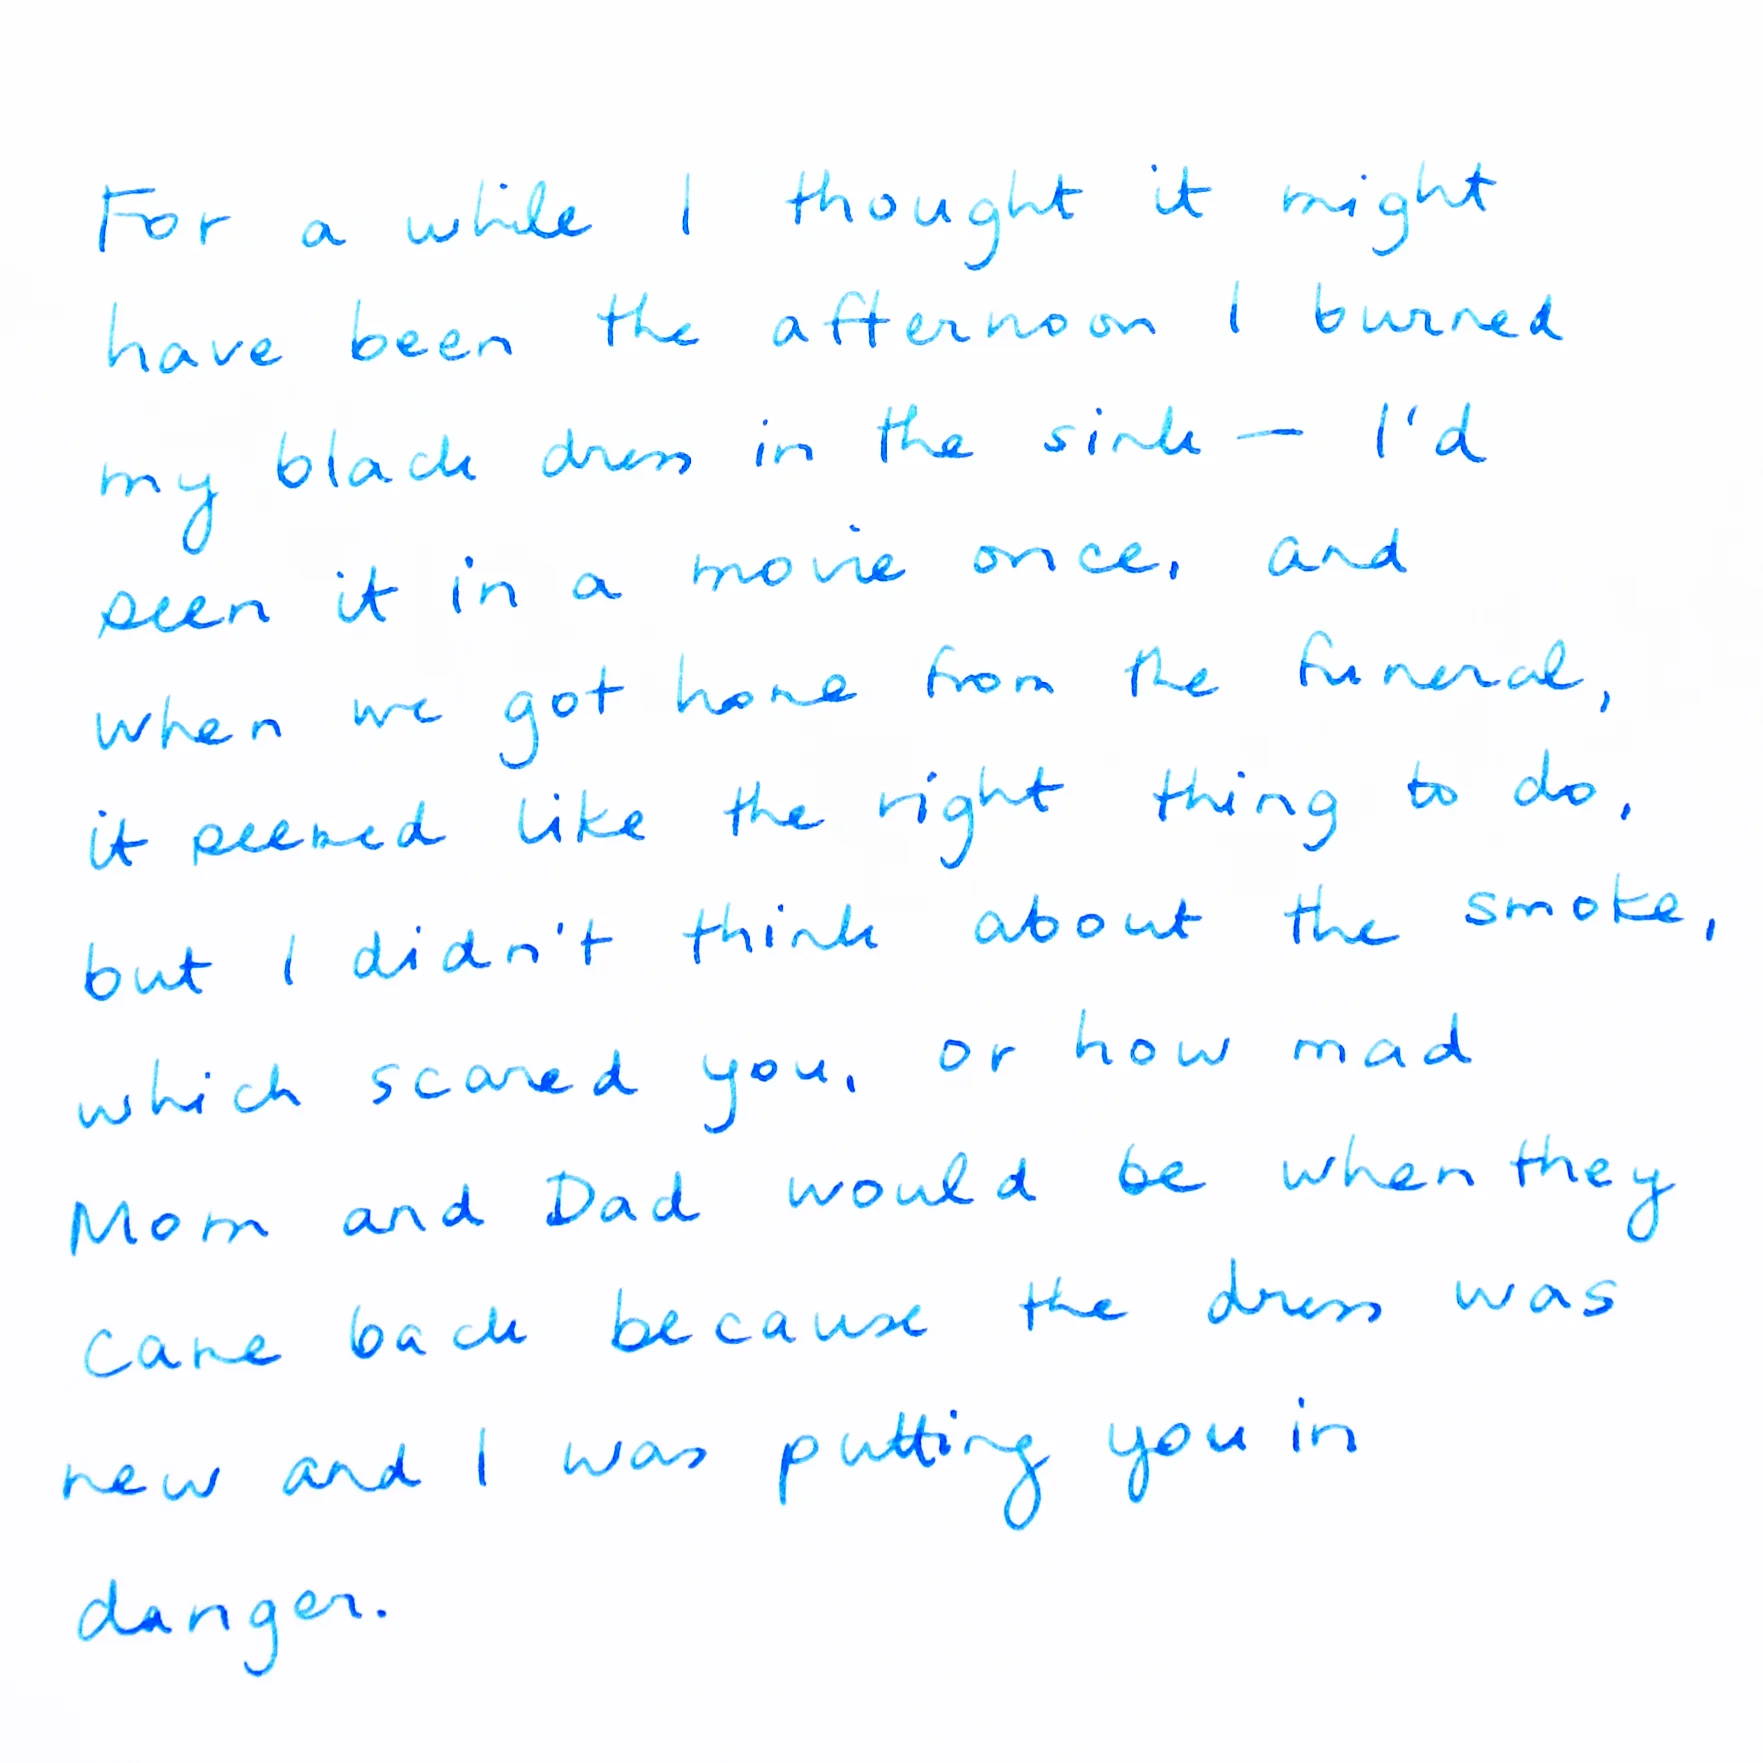 For a while I thought it might
have been the afternoon I burned
my black dress in the sink – I'd
seen it in a movie once, and
when we got home from the funeral,
it seemed like the right thing to do,
but I didn't think about the smoke,
which scared you, or how mad
Mom and Dad would be when they
came back because the dress was
new and I was putting you in
danger.